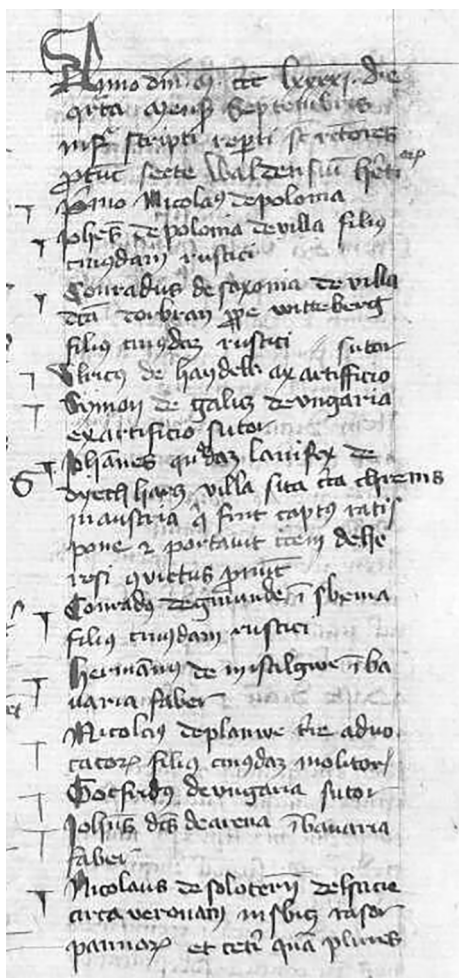 Anno dni m ccc lxxxxi die
qrta mens septembris
infra scripti repti st rectores
ptūc secte Waldensiū hēti
corz
pimo Nicolaus de polonia
Johes de polonia de villa filius
cuiusdam rustici
Conradus de saxonia de villa
dcā dorbran ppe witteberg
filius cuiusdaz rustici sutor
Ulricus de haydek ax artifficio
Symon de galicz de ungaria
ex artificio sutor
Johannes quidaz lanifex de
dyech villa sita circa chrems
in austria q fuit captus ratis
pone et portavit de he
resi
Conradus de gmunde i swevia
filius cuiusdam rustici
Hermannus de mistilgwe i ba
varia faber
Nicolaus de planwe tre advo
catorz filius cuiusdaz molitor
Gotfridus de ungaria sutor
Johes dcs de arena i bavaria
faber
Nicolaus de solotern
circa veronam rasor
pannorz et ceti quā plures